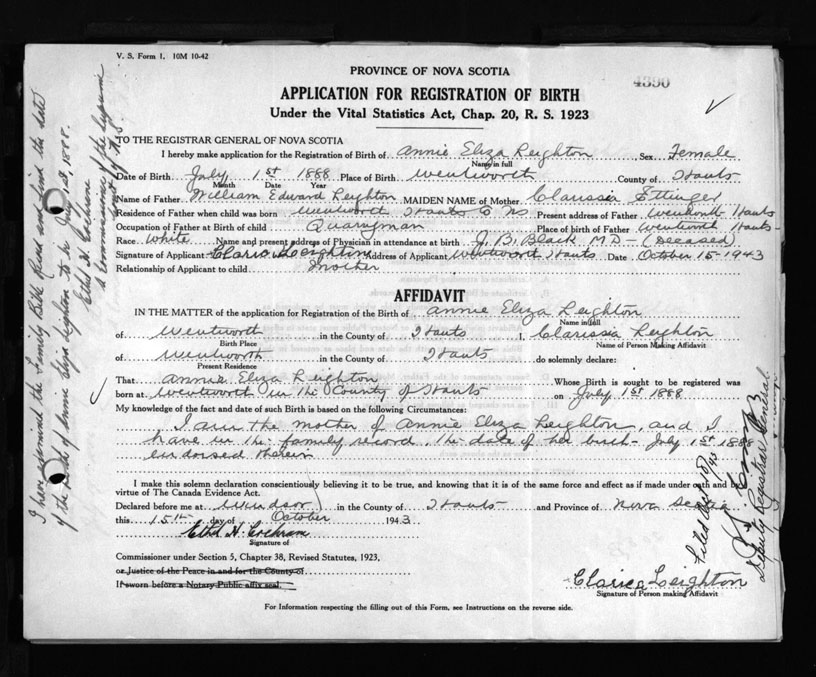 V. S. Form 1. 10M 10-42
4390
PROVINCE OF NOVA SCOTIA
APPLICATION FOR REGISTRATION OF BIRTH
Under the Vital Statistics Act, Chap. 20, R. S. 1923
TO THE REGISTRAR GENERAL OF NOVA SCOTIA
I hereby make application for the Registration of Birth of Annie Eliza Leighton Sex Female
Name in full
Date of Birth July 1st 1888 Place of Birth Wentworth County of Hants
Month Date Year
Name of Father William Edward Leighton MAIDEN NAME of Mother Clarissia Ettinger
Residence of Father when child was born Wentworth Hants Co NS Present address of Father Wentworth Hants
Occupation of Father at Birth of child Quarryman Place of birth of Father Wentworth Hants
Race White Name and present address of Physician in attendance at birth J. B. Black M D - (Deceased)
Signature of Applicant Leighton Address of Applicant Wentworth Hants Date October 15-1943
Relationship of Applicant to child mother
AFFIDAVIT
IN THE MATTER of the application for Registration of the Birth of Annie Eliza Leighton
Name in full
of Wentworth in the County of Hants I, Clarissia Leighton
Birth Place Name of Person Making Affidavit
of Wentworth in the County of Hants do solemnly declare:
Present Residence
That Annie Eliza Leighton Whose Birth is sought to be registered was
born at Wentworth in the County of Hants on July 1st 1888
My knowledge of the fact and date of such Birth is based on the following Circumstances:
I am the mother of Annie Eliza Leighton, and I
have in the family record, the date of her birth - July 1st 1888
endorsed therein
I make this solemn declaration conscientiously believing it to be true, and knowing that it is of the same force and effect as if made under oath and by
virtue of The Canada Evidence Act.
Declared before me at Windsor in the County of Hants and Province of Nova Scotia
this 15th day of October 1943
Ethel H. Cochran
Signature of
Commissioner under Section 5, Chapter 38, Revised Statutes, 1923,
or Justice of the Peace in and for the County of
If sworn before a Notary Public affix seal.
Leighton
Signature of Person making Affidavit
For Information respecting the filling out of this Form, see Instructions on the reverse side.
I have examined the Family Bible Record and find the date
of the birth of Annie Eliza Leighton to be July 1st, 1888.
Ethel H. Cochran
A Commissioner of the Supreme
Court of N.S.
Filed
Deputy Registrar General.